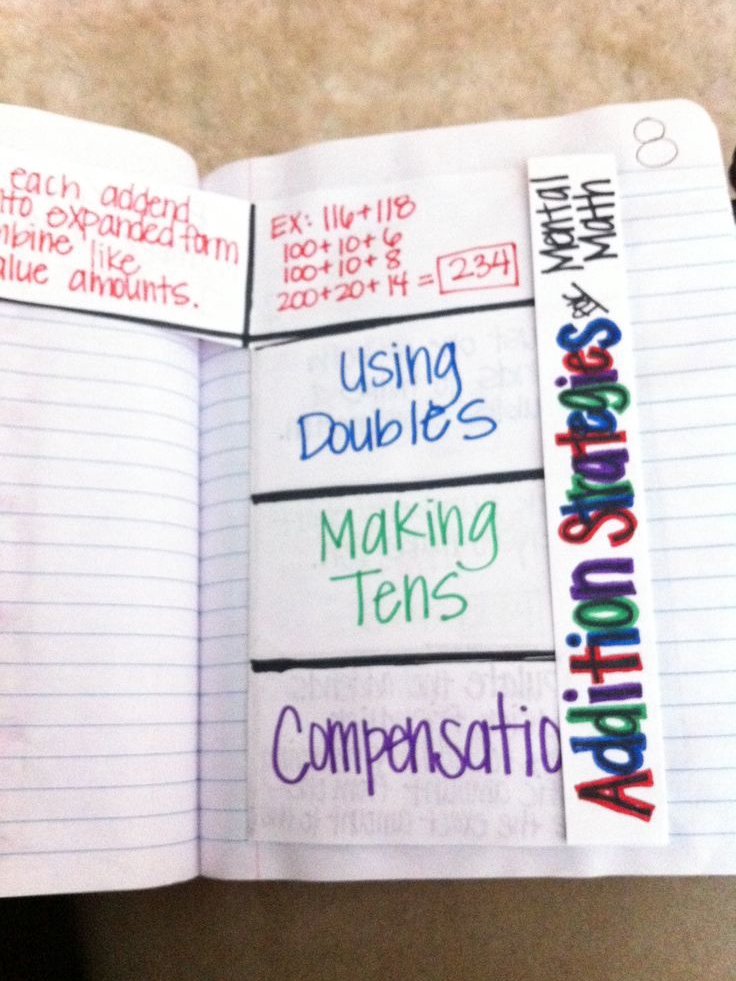 8
each addend
expanded form
like
amounts.
EX: 116+118
100+10+6
100+10+8
200+20+14 = 234
Using
Doubles
Making
Tens
Compensatio
Addition Strategies
Mental
Math